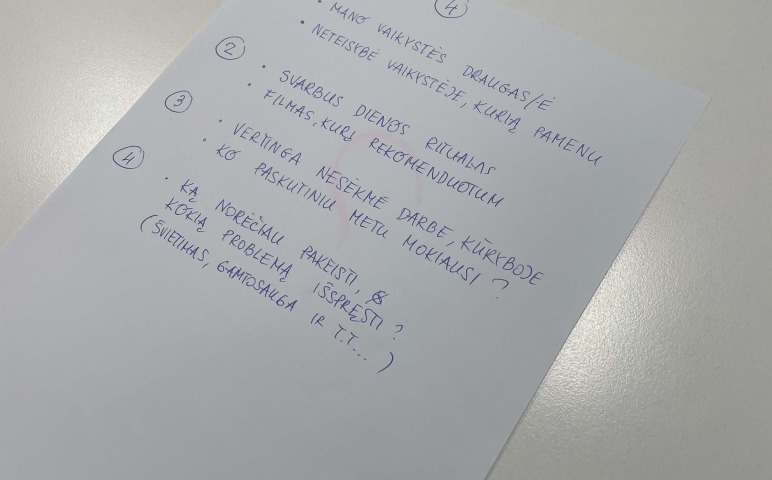 1
• MANO VAIKYSTĖS DRAUGAS/Ė
• NETEISYBĖ VAIKYSTĖJE, KURIĄ PAMENU
2
• SVARBUS DIENOS RITUALAS
• FILMAS, KURĮ REKOMENDUOTUM
3
• VERTINGA NESĖKMĖ DARBE, KŪRYBOJE
• KO PASKUTINIU METU MOKIAUSI?
4
• KĄ NORĖČIAU PAKEISTI,
KOKIĄ PROBLEMĄ IŠSPRĘSTI?
(ŠVIETIMAS, GAMTOSAUGA IR T.T... )